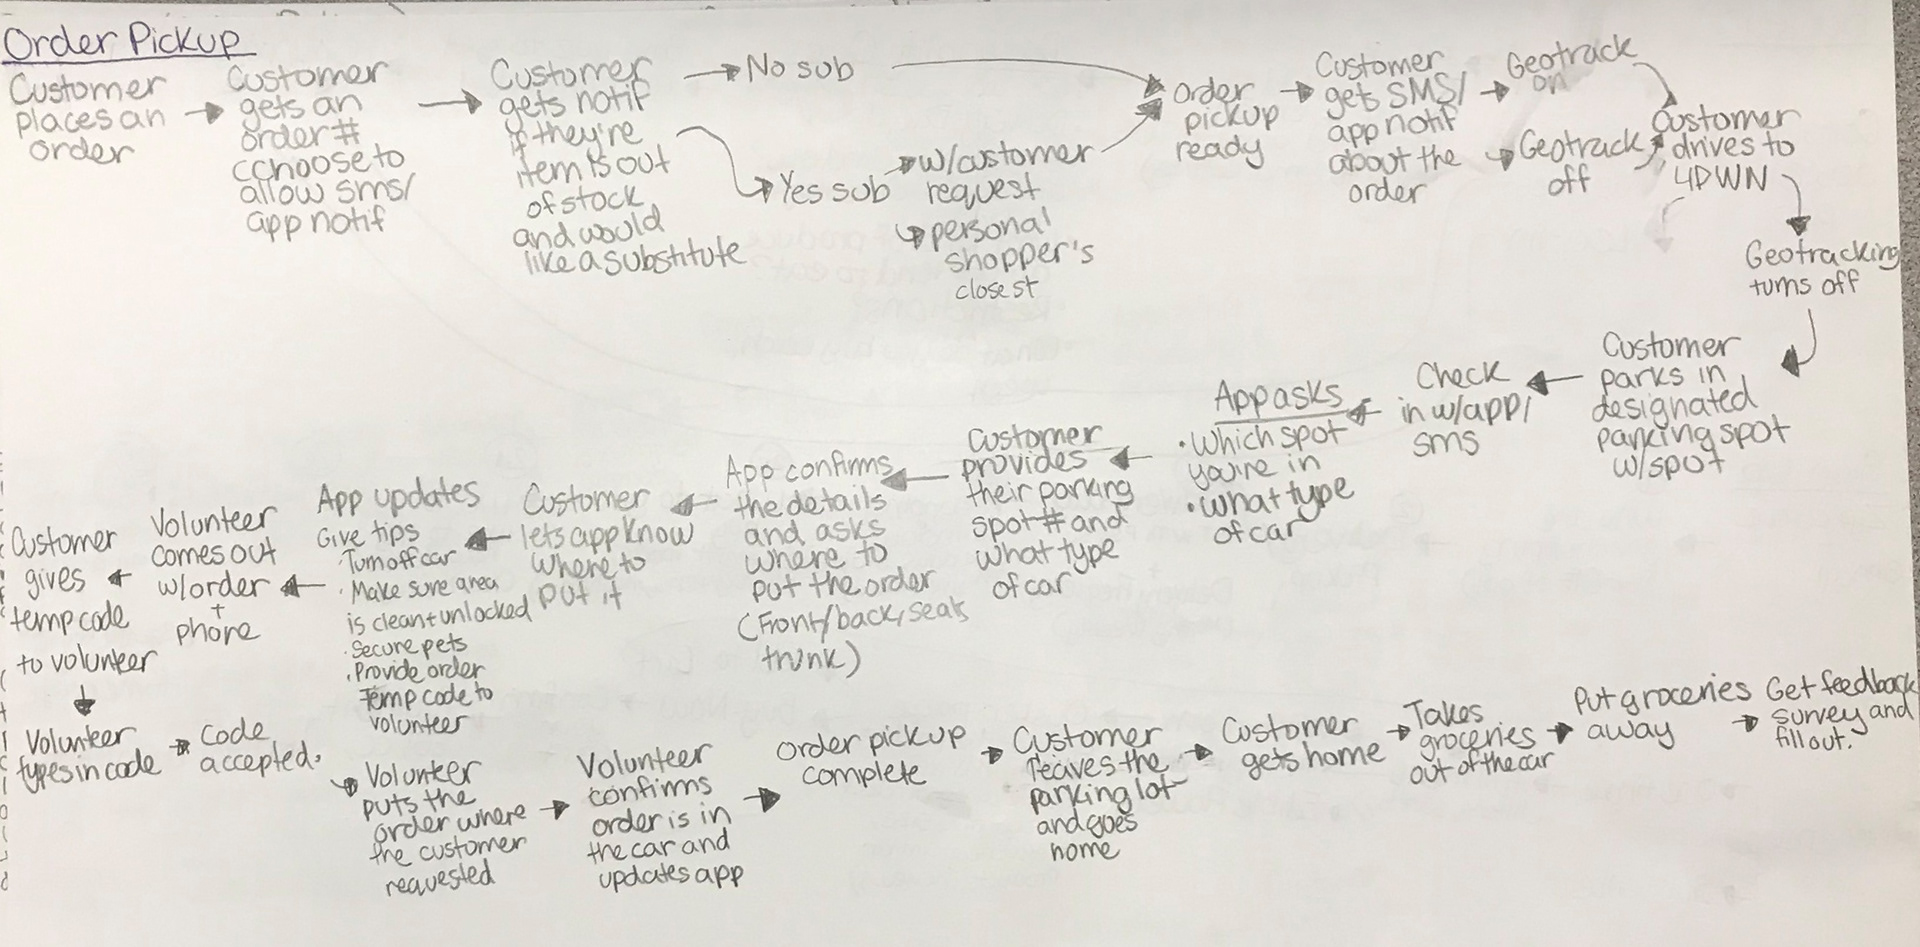 Order Pickup
Customer
places an
order
Customer
gets an
order #
cchoose to
allow sms/
app notif
Customer
gets notif
if they're
item is out
of stock
and would
like a substitute
No sub
Yes sub
w/customer
request
personal
shopper's
closest
order
pickup
ready
Customer
gets SMS/
app notif
about the
order
Geotrack
on
Geotrack
off
Customer
drives to
4DWN
Geotracking
turns off
Customer
parks in
designated
parking spot
w/spot
Check
in w/app/
sms
App asks
· Which spot
you're in
· What type
of car
Customer
provides
their parking
spot # and
what type
of car
App confirms
the details
and asks
where to
put the order
(Front/back, seats
trunk)
Customer
lets app know
where to
put it
App updates
Give tips
· Turn off car
· Make sure area
is clean + unlocked
· Secure pets
· Provide order
Temp code to
volunteer
Volunteer
comes out
w/order
+
phone
Customer
gives
temp code
to volunteer
Volunteer
types in code
Code
accepted.
Volunteer
puts the
order where
the customer
requested
Volunteer
confirms
order is in
the car and
updates app
order pickup
complete
Customer
leaves the
parking lot
and goes
home
Customer
gets home
Takes
groceries
out of the car
Put groceries
away
Get feedback
survey and
fill out.